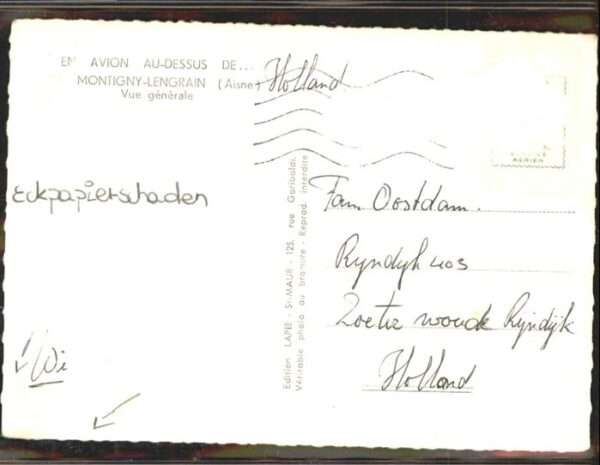 EN AVION AU-DESSUS DE...
MONTIGNY-LENGRAIN (Aisne)
Vue générale
Holland
Eckpapierschaden
Wi
Edition LAPIE - St-MAUR - 125, rue Garibaldi
Véritable photo au bromure - Reprod. interdite
AERIEN
Fam Oostdam.
Ryndyk 40s
Zoeter woude Ryndyk
Holland